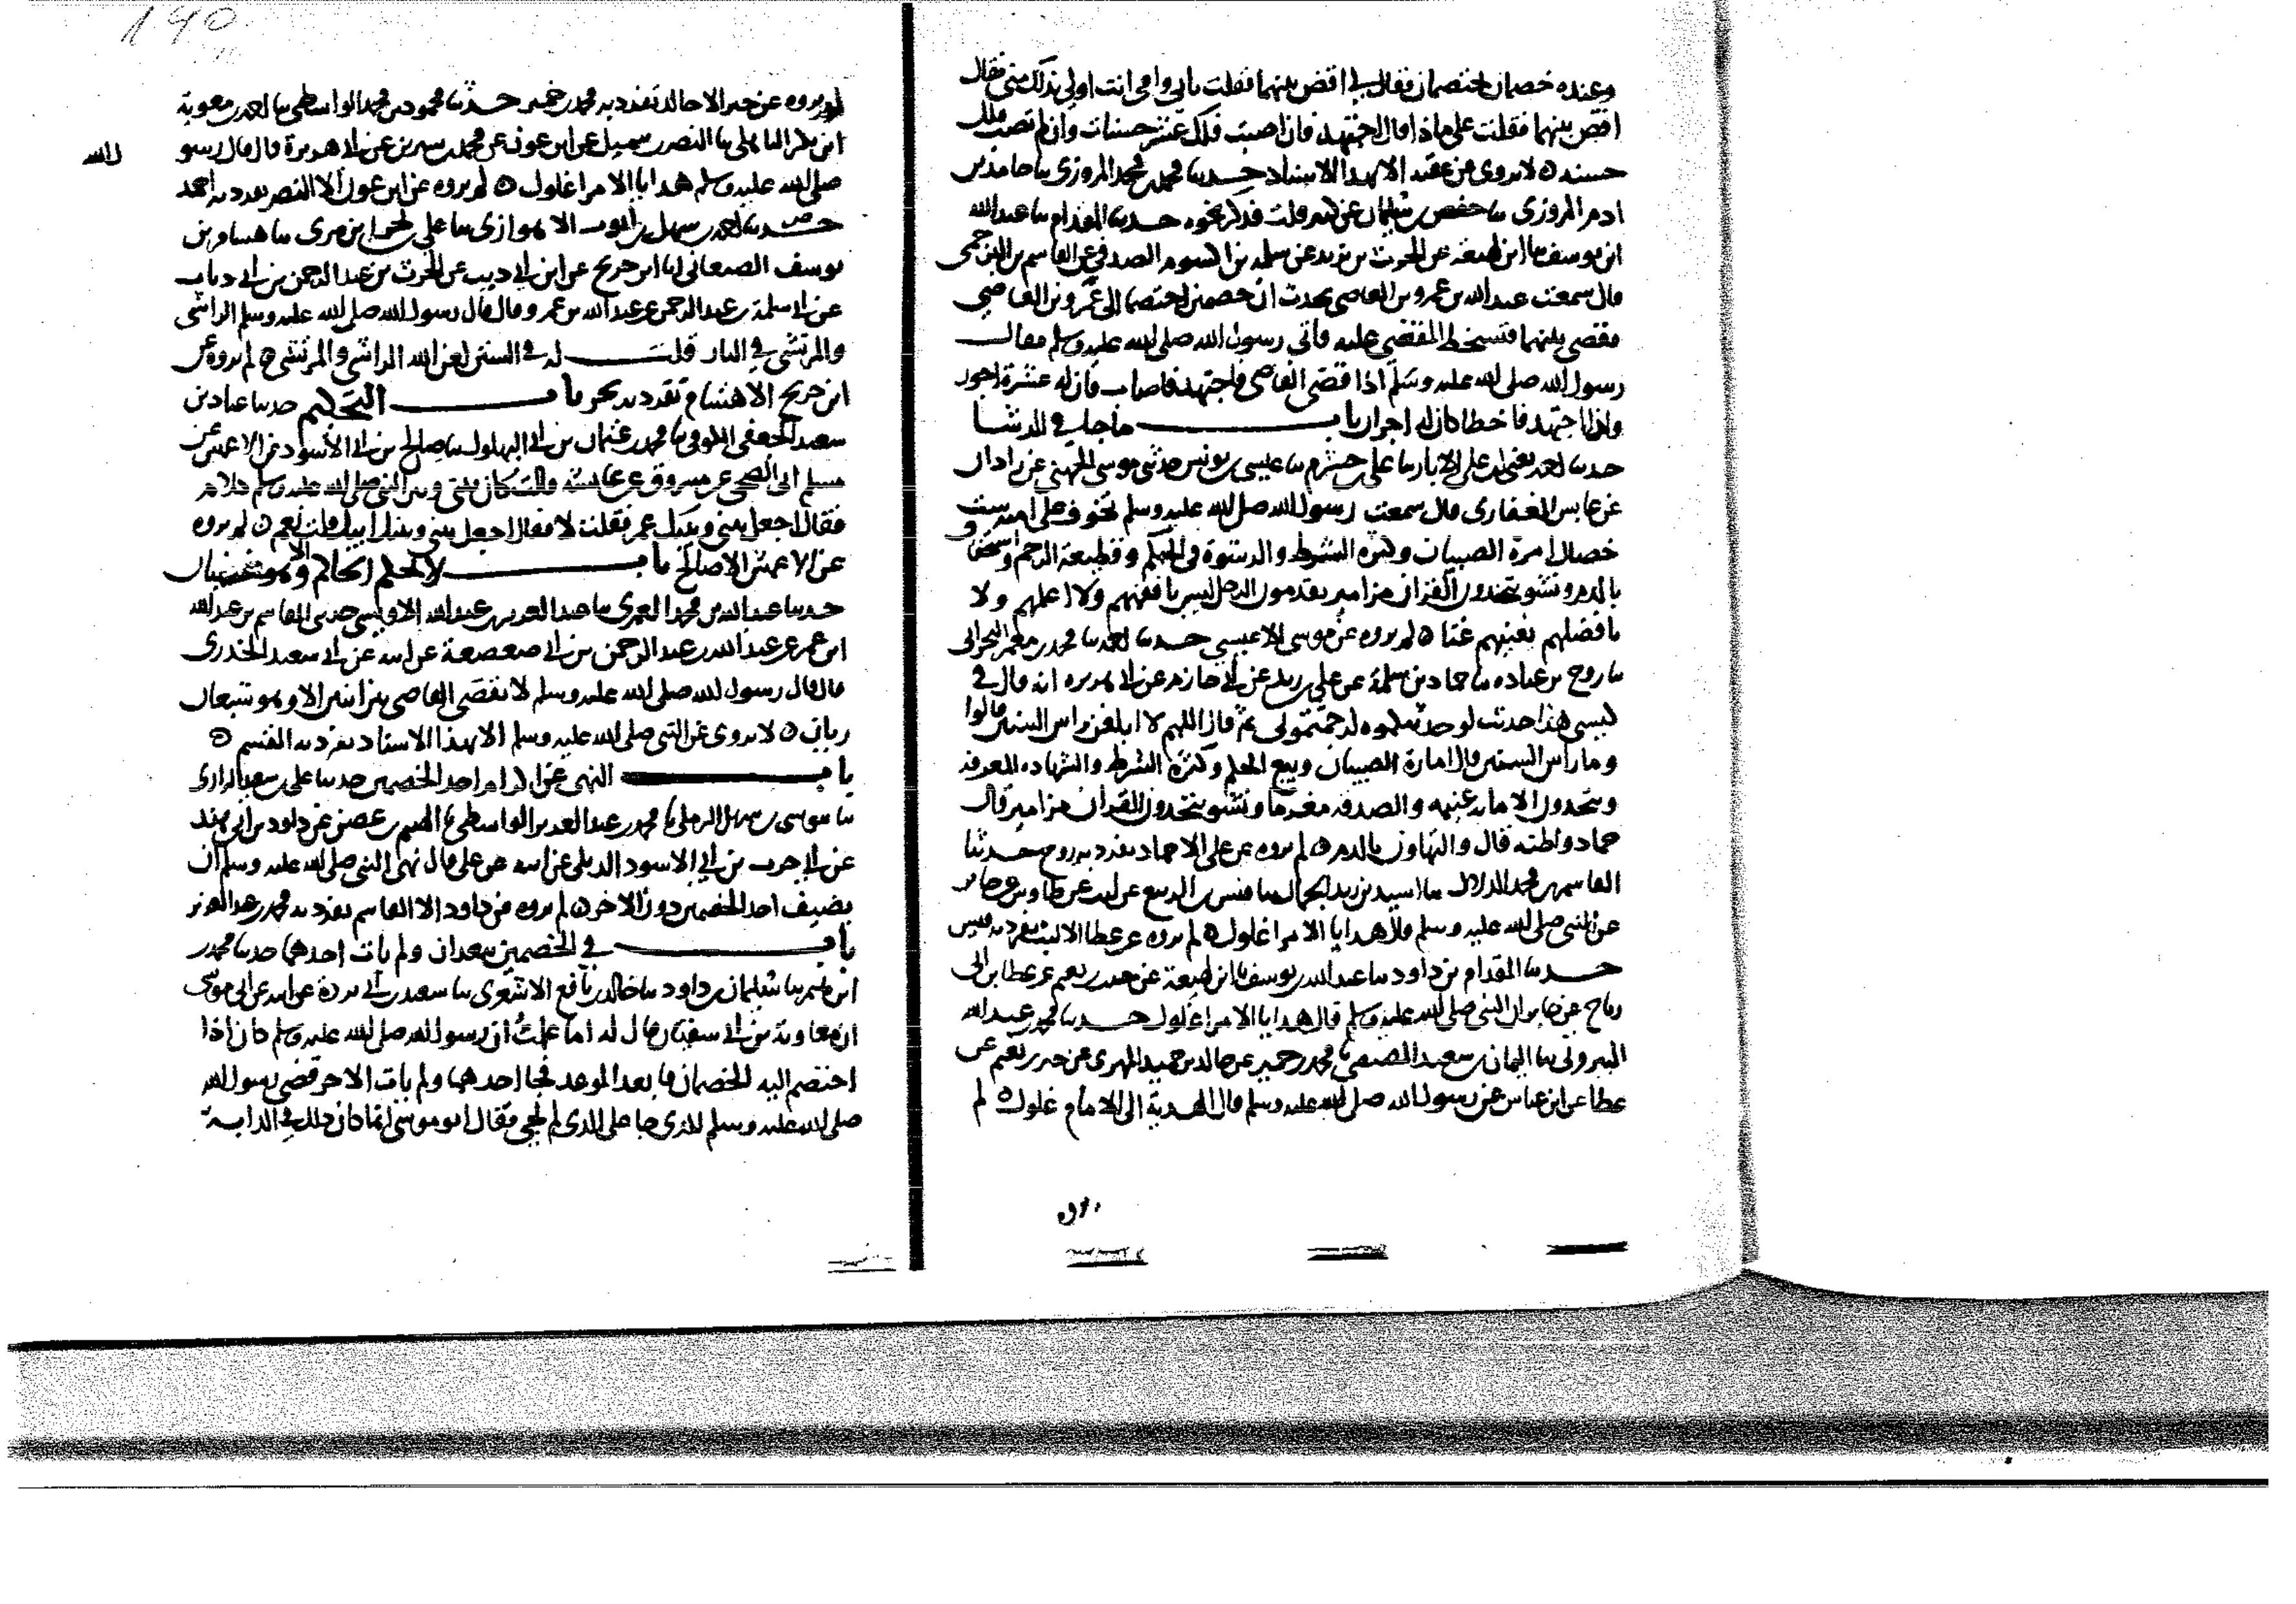 وعنده خصمان يختصمان فقال لي اقض بينهما فقلت بابي وامي انت اولى بذلك مني فقال
اقض بينهما فقلت على ماذا قال اجتهد فان اصبت فلك عشر حسنات وان لم تصب فلك
حسنه لا يروى عن عقبه الا بهذا الاسناد حدثنا محمد بن محمد المروزي ثنا حامد بن
ادم المروزي ثنا حفص بن سليمان عن كثير قلت فذكر نحوه حدثنا المقدام ثنا عبدالله
ابن يوسف ثنا ابن لهيعه عن الحرث بن يزيد عن سلمه بن اكسوم الصدفي عن القاسم بن البرحى
قال سمعت عبدالله بن عمرو بن العاصي يحدث ان خصمين اختصما الى عمرو بن العاصي
فقضى بينهما فتسخط المقضي عليه فاتى رسول الله صلى الله عليه وسلم فقال
رسول الله صلى الله عليه وسلم اذا قضى القاضي فاجتهد فاصاب فان له عشرة اجور
واذا اجتهد فاخطا كان له اجران باب ماجا في الرشا
حدثنا احمد بن علي الابار ثنا علي بن خشرم ثنا عيسى بن يونس حدثني موسى الجهني عن زاذان
عن عابس الغفاري قال سمعت رسول الله صلى الله عليه وسلم تخوف على امته ست
خصال امرة الصبيان وكثرة الشرط والرشوة في الحكم وقطيعة الرحم واستخفاف
بالدم ونشو يتخذون القران مزامير يقدمون الرجل ليس بافقههم ولا اعلمهم ولا
بافضلهم يغنيهم غنا لم يروه عن موسى الا عيسى حدثنا احمد ثنا محمد بن معمر البحراني
ثنا روح بن عباده ثنا حماد بن سلمة عن علي بن زيد عن ابي حازم عن ابي هريره انه قال في
كيسي هذا حديث لو حدثتكموه لرجمتموني ثم قال اللهم لا ابلغن راس الستين قالوا
وما راس الستين قال امارة الصبيان وبيع الحكم وكثرة الشرط والشهاده بالمعرفه
ويتخذون الامانه غنيمه والصدقه مغرما ونشو يتخذون القران مزامير قال
حماد واظنه قال والتهاون بالدم لم يروه عن علي الا حماد تفرد به روح حدثنا
القاسم بن محمد الدلال ثنا اسيد بن زيد الجمال ثنا قيس بن الربيع عن ليث عن عطا وعن جابر
عن النبي صلى الله عليه وسلم قال هدايا الامرا غلول لم يروه عن عطا الا ليث تفرد به قيس
حدثنا المقدام بن داود ثنا عبدالله بن يوسف ثنا ابن لهيعة عن خير بن نعيم عن عطا بن ابي
رباح عن جابر ان النبي صلى الله عليه وسلم قال هدايا الامرا غلول حدثنا محمد بن عبدالله
البيروتي ثنا اليمان بن سعيد المصيصي ثنا محمد بن حمير عن خالد بن حميد المهري عن خير بن نعيم عن
عطا عن ابن عباس عن رسول الله صلى الله عليه وسلم قال الهدية الى الامام غلول لم
190
يروه عن خير الا خالد تفرد به محمد بن حمير حدثنا محمود بن محمد الواسطي ثنا احمد بن معوية
ابن بكر الباهلي ثنا النضر بن شميل عن ابن عون عن محمد بن سيرين عن ابي هريرة قال قال رسو
ل الله
صلى الله عليه وسلم هدايا الامرا غلول لم يروه عن ابن عون الا النضر تفرد به احمد
حدثنا احمد بن سهل بن ايوب الاهوازي ثنا علي بن بحر ابن بري ثنا هشام بن
يوسف الصنعاني انا ابن جريج عن ابن ابي ذيب عن الحرث بن عبدالرحمن بن ابي ذباب
عن ابي سلمة بن عبدالرحمن عن عبدالله بن عمرو قال قال رسول الله صلى الله عليه وسلم الراشي
والمرتشي في النار قلت له في السنن لعن الله الراشي والمرتشي لم يروه عن
ابن جريج الا هشام تفرد به بحر باب التحكيم حدثنا عباد بن
سعيد الجعفي الكوفي ثنا محمد بن عثمان بن ابي البهلول ثنا صالح بن ابي الاسود عن الاعمش عن
مسلم ابي الضحى عن مسروق عن عايشة قالت كان بيني وبين النبي صلى الله عليه وسلم كلام
فقال اجعل بيني وبينك عمر فقلت لا فقال اجعل بيني وبينك اباك قلت نعم لم يروه
عن الاعمش الا صالح باب لا يحكم الحاكم الا وهو شبعان
حدثنا عبدالله بن محمد العمري ثنا عبدالعزيز بن عبدالله الاويسي حدثني القاسم بن عبدالله
ابن عمر عن عبدالله بن عبدالرحمن بن ابي صعصعة عن ابيه عن ابي سعيد الخدري
قال قال رسول الله صلى الله عليه وسلم لا يقضي القاضي بين اثنين الا وهو شبعان
ريان لا يروى عن النبي صلى الله عليه وسلم الا بهذا الاسناد تفرد به القسم
باب النهي عن اكرام احد الخصمين حدثنا علي بن سعيد الرازي
ثنا موسى بن سهل الرملي ثنا محمد بن عبدالعزيز الواسطي ثنا القسم بن غصن عن داود بن ابي هند
عن ابي حرب بن ابي الاسود الديلي عن ابيه عن علي قال نهى النبي صلى الله عليه وسلم ان
يضيف احد الخصمين دون الاخر لم يروه عن داود الا القاسم تفرد به محمد بن عبدالعزيز
باب في الخصمين يتعدان ولم يات احدهما حدثنا محمد بن
ثنا سليمان بن داود ثنا خالد بن نافع الاشعري ثنا سعيد بن ابي بردة عن ابيه عن ابي موسى
ان معاوية بن ابي سفيان قال له اما علمت ان رسول الله صلى الله عليه وسلم كان اذا
اختصم اليه الخصمان فابعدا الموعد فجا احدهما ولم يات الاخر قضى رسول الله
صلى الله عليه وسلم للذي جا على الذي لم يجي فقال ابو موسى انما كان ذلك في الدابة